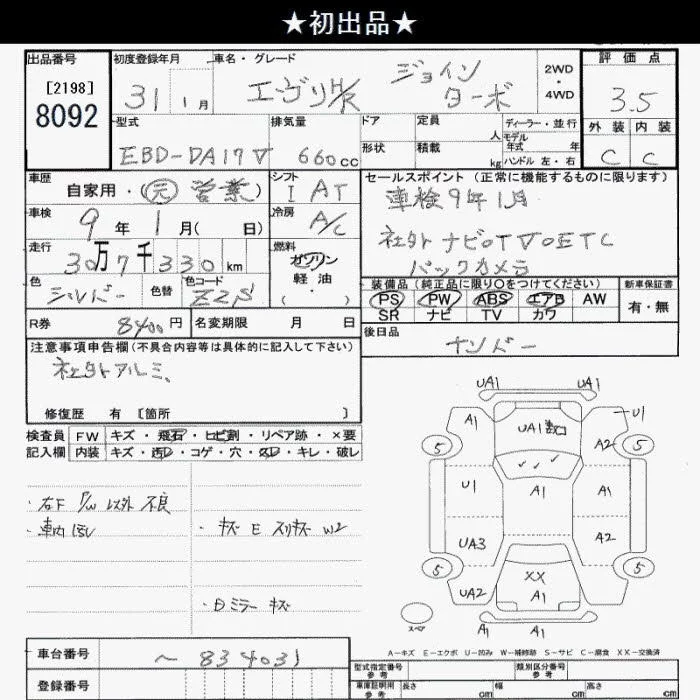 ★初出品★
出品番号
[2198]
8092
初度登録年月
31 1月
車名・グレード
エーヴリィ ジョイン
ターボ
2WD
・
4WD
評価点
3.5
外装 内装
C C
型式
EBD-DA17V
排気量
660cc
ドア
形状
定員 人
積載 kg
ディーラー・並行
モデル年式 年
ハンドル 左・右
車歴
自家用・元 営業
シフト
I AT
車検
9年 1月( 日)
冷房
A/C
走行
30万7千330km
燃料
ガソリン
軽油
( ・ )
色
シルバー
色替
色コード
Z2S
R券
8400円
名変期限 月 日
セールスポイント (正常に機能するものに限ります)
車検9年1月
社外ナビ・TV・ETC
バックカメラ
装備品(純正品に限り○をつけてください)
PS PW ABS エアB AW
SR ナビ TV カワ
新車保証書
有・無
後日品
注意事項申告欄(不具合内容等は具体的に記入して下さい)
社外アルミ、
修復歴 有 [箇所 ]
検査員
記入欄
FW キズ・飛石・ヒビ割・リペア跡・×要
内装 キズ・汚・コゲ・穴・・キレ・破レ
・右F P/W 以外 不良
・車内
・キズ E スリキズ W2
・ミラー キズ
UA1 UA1
A1 UA1 U1
5 A2 5
U1 A1 A1
UA3 A2
5 XX 5
UA2 A1
スペア
A1 A1
A-キズ E-エクボ U-凹み W-補修跡 S-サビ C-腐食 XX-交換済
車台番号
~834031
登録番号
型式指定番号
参考
類別区分番号
参考
車庫証明用
参考
長さ cm
幅 cm
高さ cm